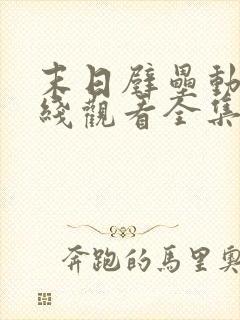 末日壁壘動
綫觀看全集
奔跑的馬里奧